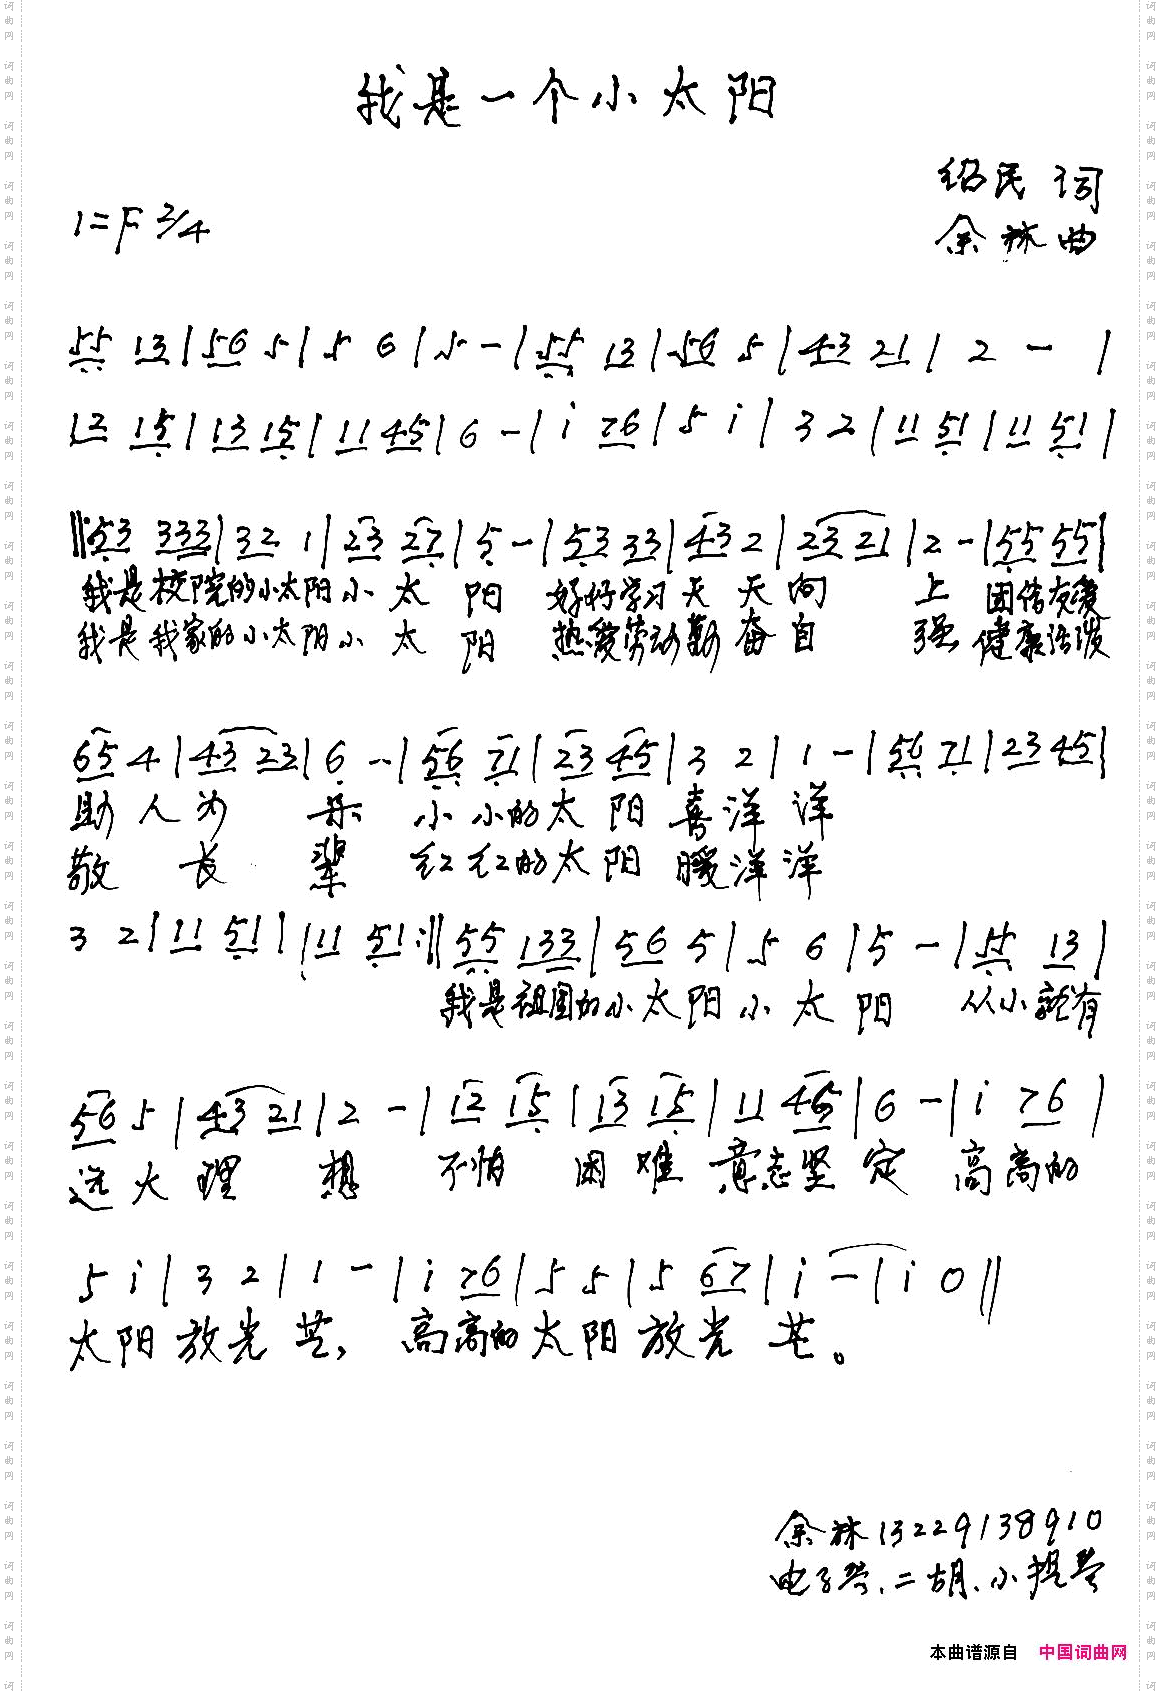 我是一个小太阳
绍民 词
1=F 2/4
余林 曲
55 13 | 56 5 | 5 6 | 5 - | 55 13 | 56 5 | 43 21 | 2 - |
12 15 | 13 15 | 11 45 | 6 - | i 76 | 5 i | 3 2 | 11 51 | 11 51 |
‖: 53 333 | 32 1 | 23 27 | 5 - | 53 33 | 43 2 | 23 21 | 2 - | 55 55 |
我是校院的小太阳小太阳 好好学习天天向上 团结友爱
我是我家的小太阳小太阳 热爱劳动勤奋自强 健康活泼
65 4 | 43 23 | 6 - | 56 71 | 23 45 | 3 2 | 1 - | 56 71 | 23 45 |
助人为乐 小小的太阳喜洋洋
敬长辈 红红的太阳暖洋洋
3 2 | 11 51 | 11 51 :‖ 55 133 | 56 5 | 5 6 | 5 - | 55 13 |
我是祖国的小太阳小太阳 从小就有
56 5 | 43 21 | 2 - | 12 15 | 13 15 | 11 45 | 6 - | i 76 |
远大理想 不怕困难意志坚定 高高的
5 i | 3 2 | 1 - | i 76 | 5 5 | 5 67 | i - | i 0 ‖
太阳放光芒，高高的太阳放光芒。
余林13229138910
电子琴、二胡、小提琴
本曲谱源自 中国词曲网